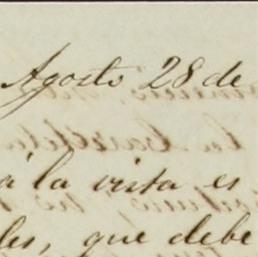 Agosto 28 de
á la vista es
les, que debe